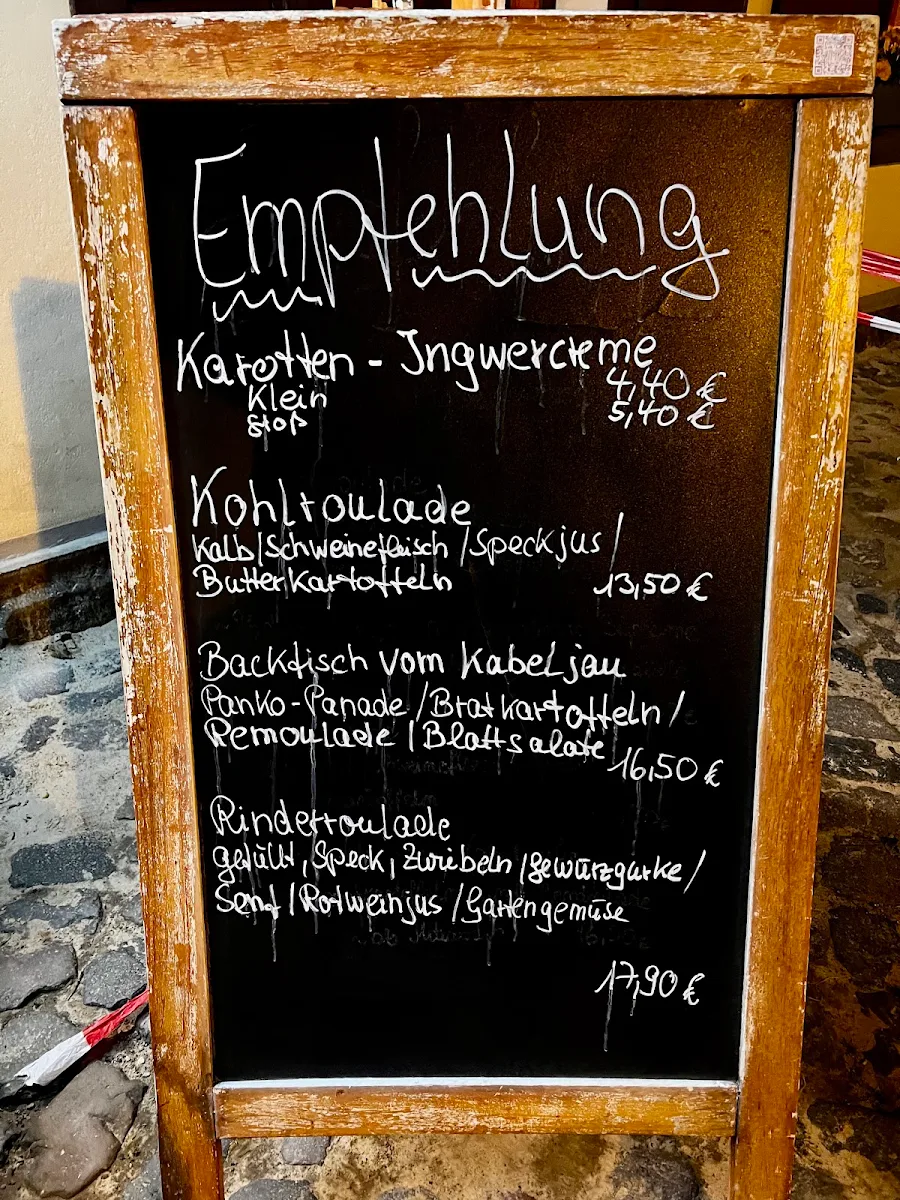 Empfehlung
Karotten - Ingwercreme
Klein 4,40 €
Groß 5,40 €
Kohlroulade
Kalb/Schweinefleisch/Speckjus/
Butterkartoffeln 13,50 €
Backfisch vom Kabeljau
Panko-Panade/Bratkartoffeln/
Remoulade/Blattsalate 16,50 €
Rinderroulade
gefüllt, Speck, Zwiebeln/Gewürzgurke/
Senf/Rotweinjus/Gartengemüse
17,90 €